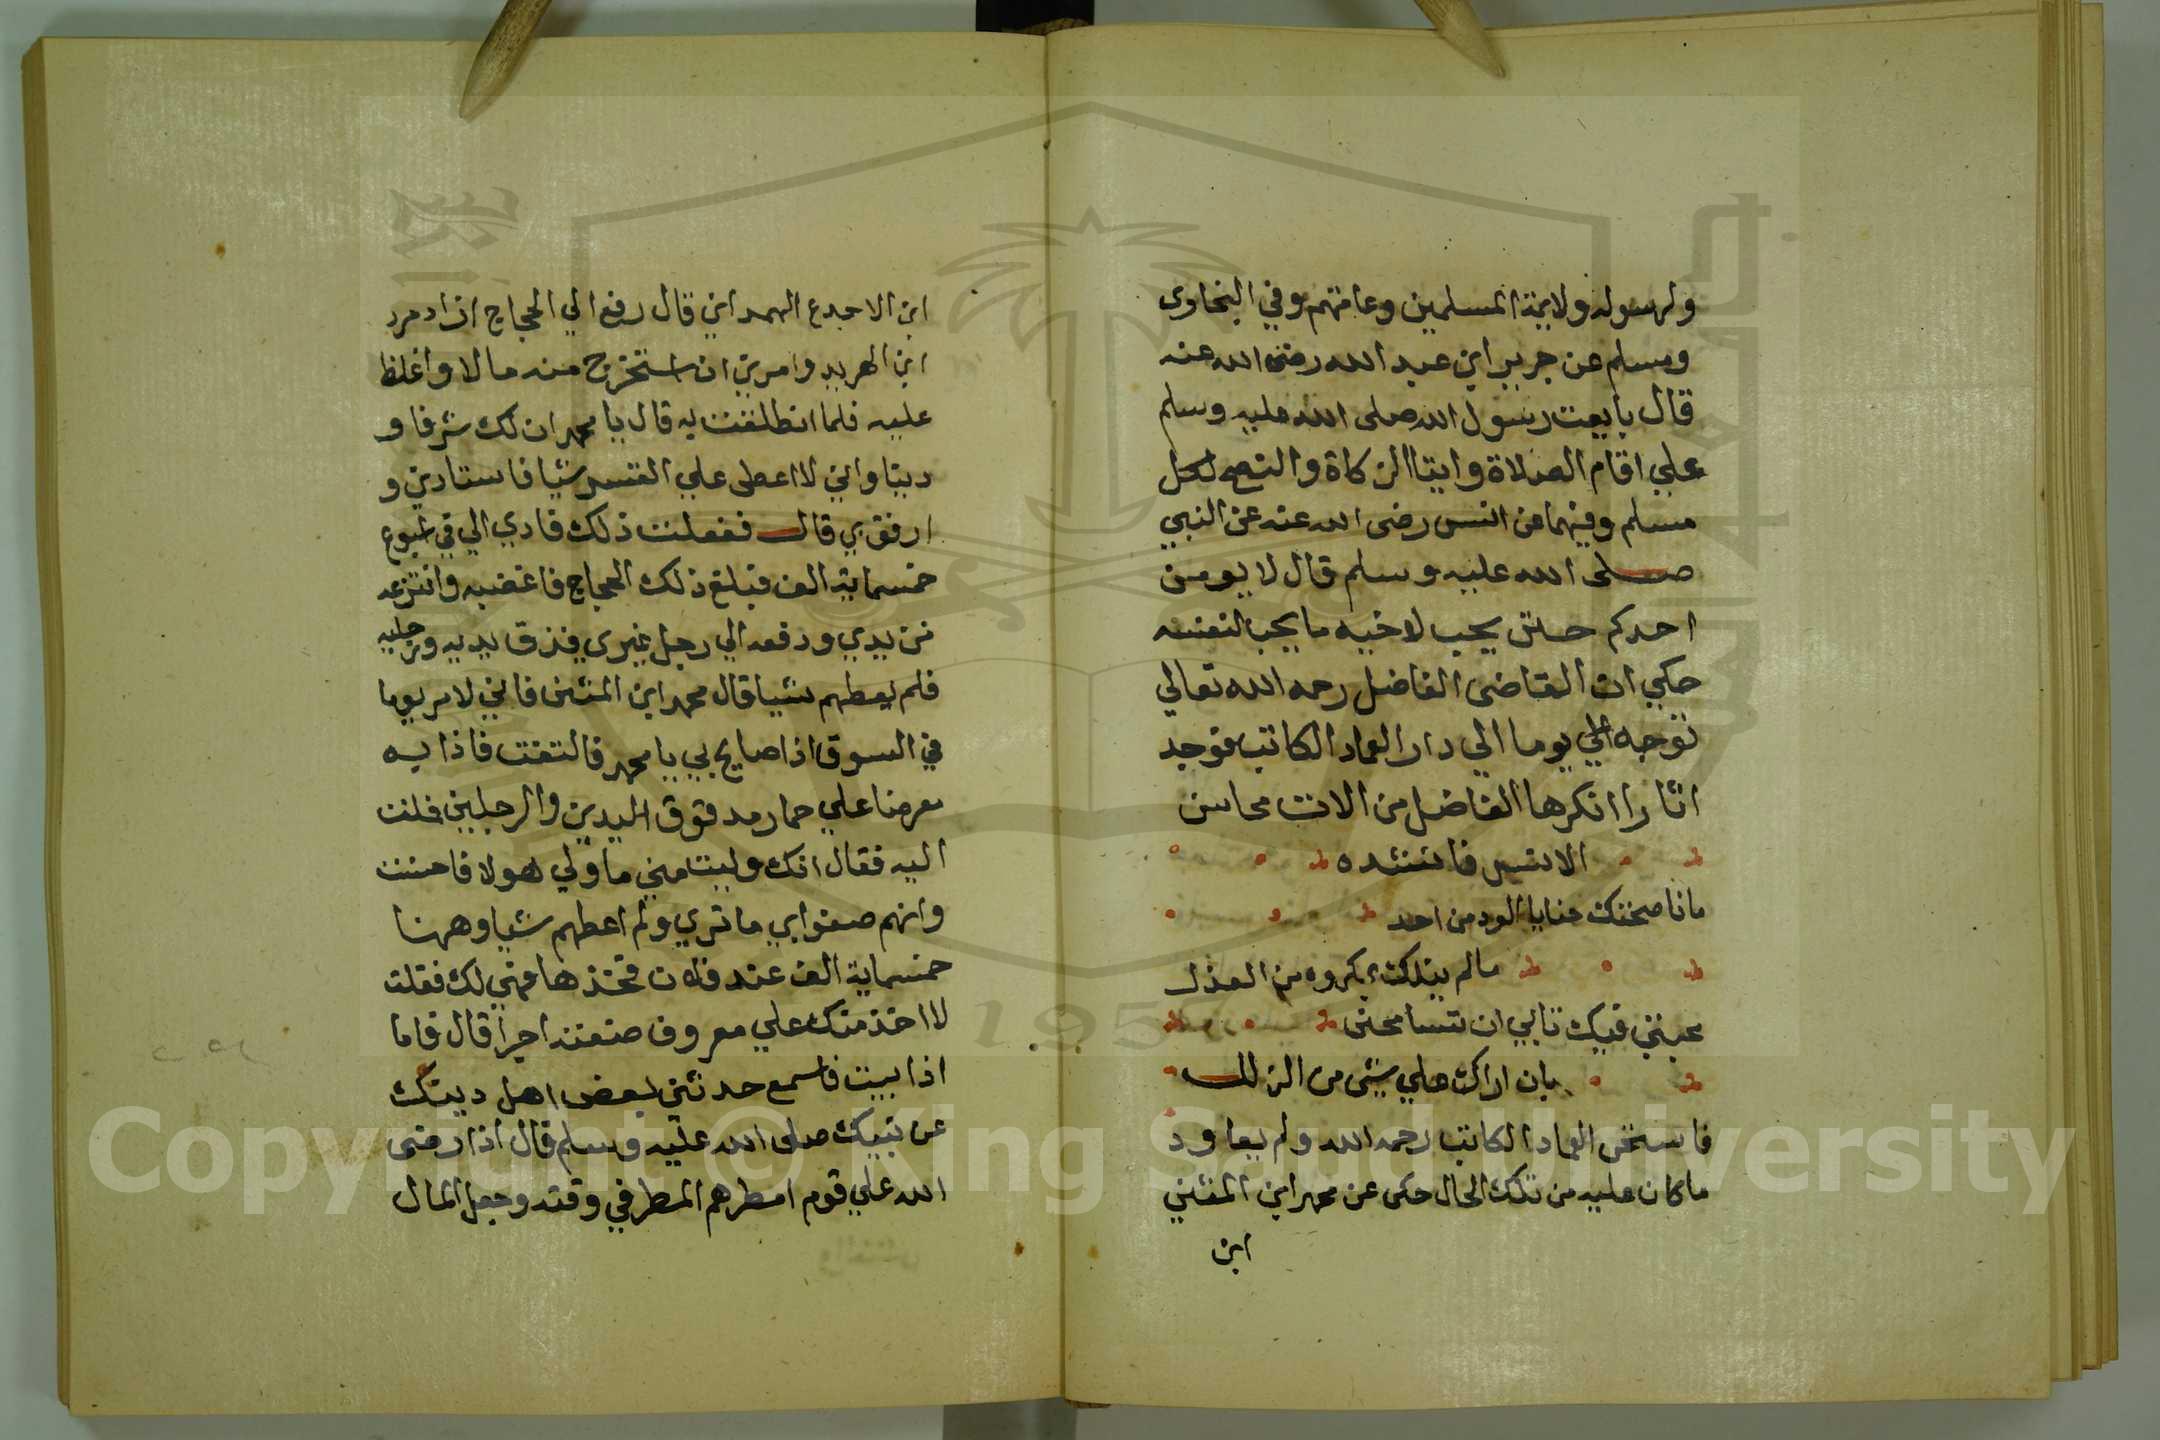 ولرسوله ولايمة المسلمين وعامتهم وفي البخاري
ومسلم عن جرير ابن عبد الله رضى الله عنه
قال بايعت رسول الله صلى الله عليه وسلم
علي اقام الصلاة وايتا الزكاة والنصح لكل
مسلم وفيهما عن انس رضى الله عنه عن النبي
صلى الله عليه وسلم قال لا يومن
احدكم حتى يحب لاخيه ما يحب لنفسه
حكي ان القاضى الفاضل رحمه الله تعالي
توجه الي يوما الي دار العماد الكاتب فوجد
اثارا انكرها الفاضل من الات محاسن
الانس فانشده
ما ناصحتك خبايا الود من احد
ما لم ينلك بمكروه من العذل
محبتي فيك تابي ان تسامحني
بان اراك علي شي من الزلل
فاستحى العماد الكاتب رحمه الله ولم يعاود
ما كان عليه من تلك الحال حكى عن محمد ابن المنثني
ابن
ابن الاجدع الهمداني قال رفع الي الحجاج ازادمرد
ابن الهربد وامرني ان استخرج منه مالا واغلظ
عليه فلما انطلقت به قال يا محمد ان لك شرفا و
دينا واني لا اعطى علي القسر شيا فاستادني و
ارفق بي قال ففعلت ذلك فادي الي في اسبوع
خمسماية الف فبلغ ذلك الحجاج فاغضبه وانتزعه
من يدي ودفعه الي رجل غيري فدق يديه ورجليه
فلم يعطهم شيا قال محمد ابن المثنى فاني لامر يوما
في السوق اذا صايح بي يا محمد فالتفت فاذا به
معرضا علي حمار مدقوق اليدين والرجلين فملت
اليه فقال انك وليت مني ما ولي هولا فاحسنت
وانهم صنعوا بي ما تري ولم اعطهم شيا وههنا
خمسماية الف عند فلان فخذها فهي لك فقلت
لا اخذ منك علي معروف صنعته اجرا قال فاما
اذا ابيت فاسمع حدثني بعض اهل دينك
عن نبيك صلى الله عليه وسلم قال اذا رضى
الله علي قوم امطرهم المطر في وقته وجعل المال
Copyright © King Saud University
1957